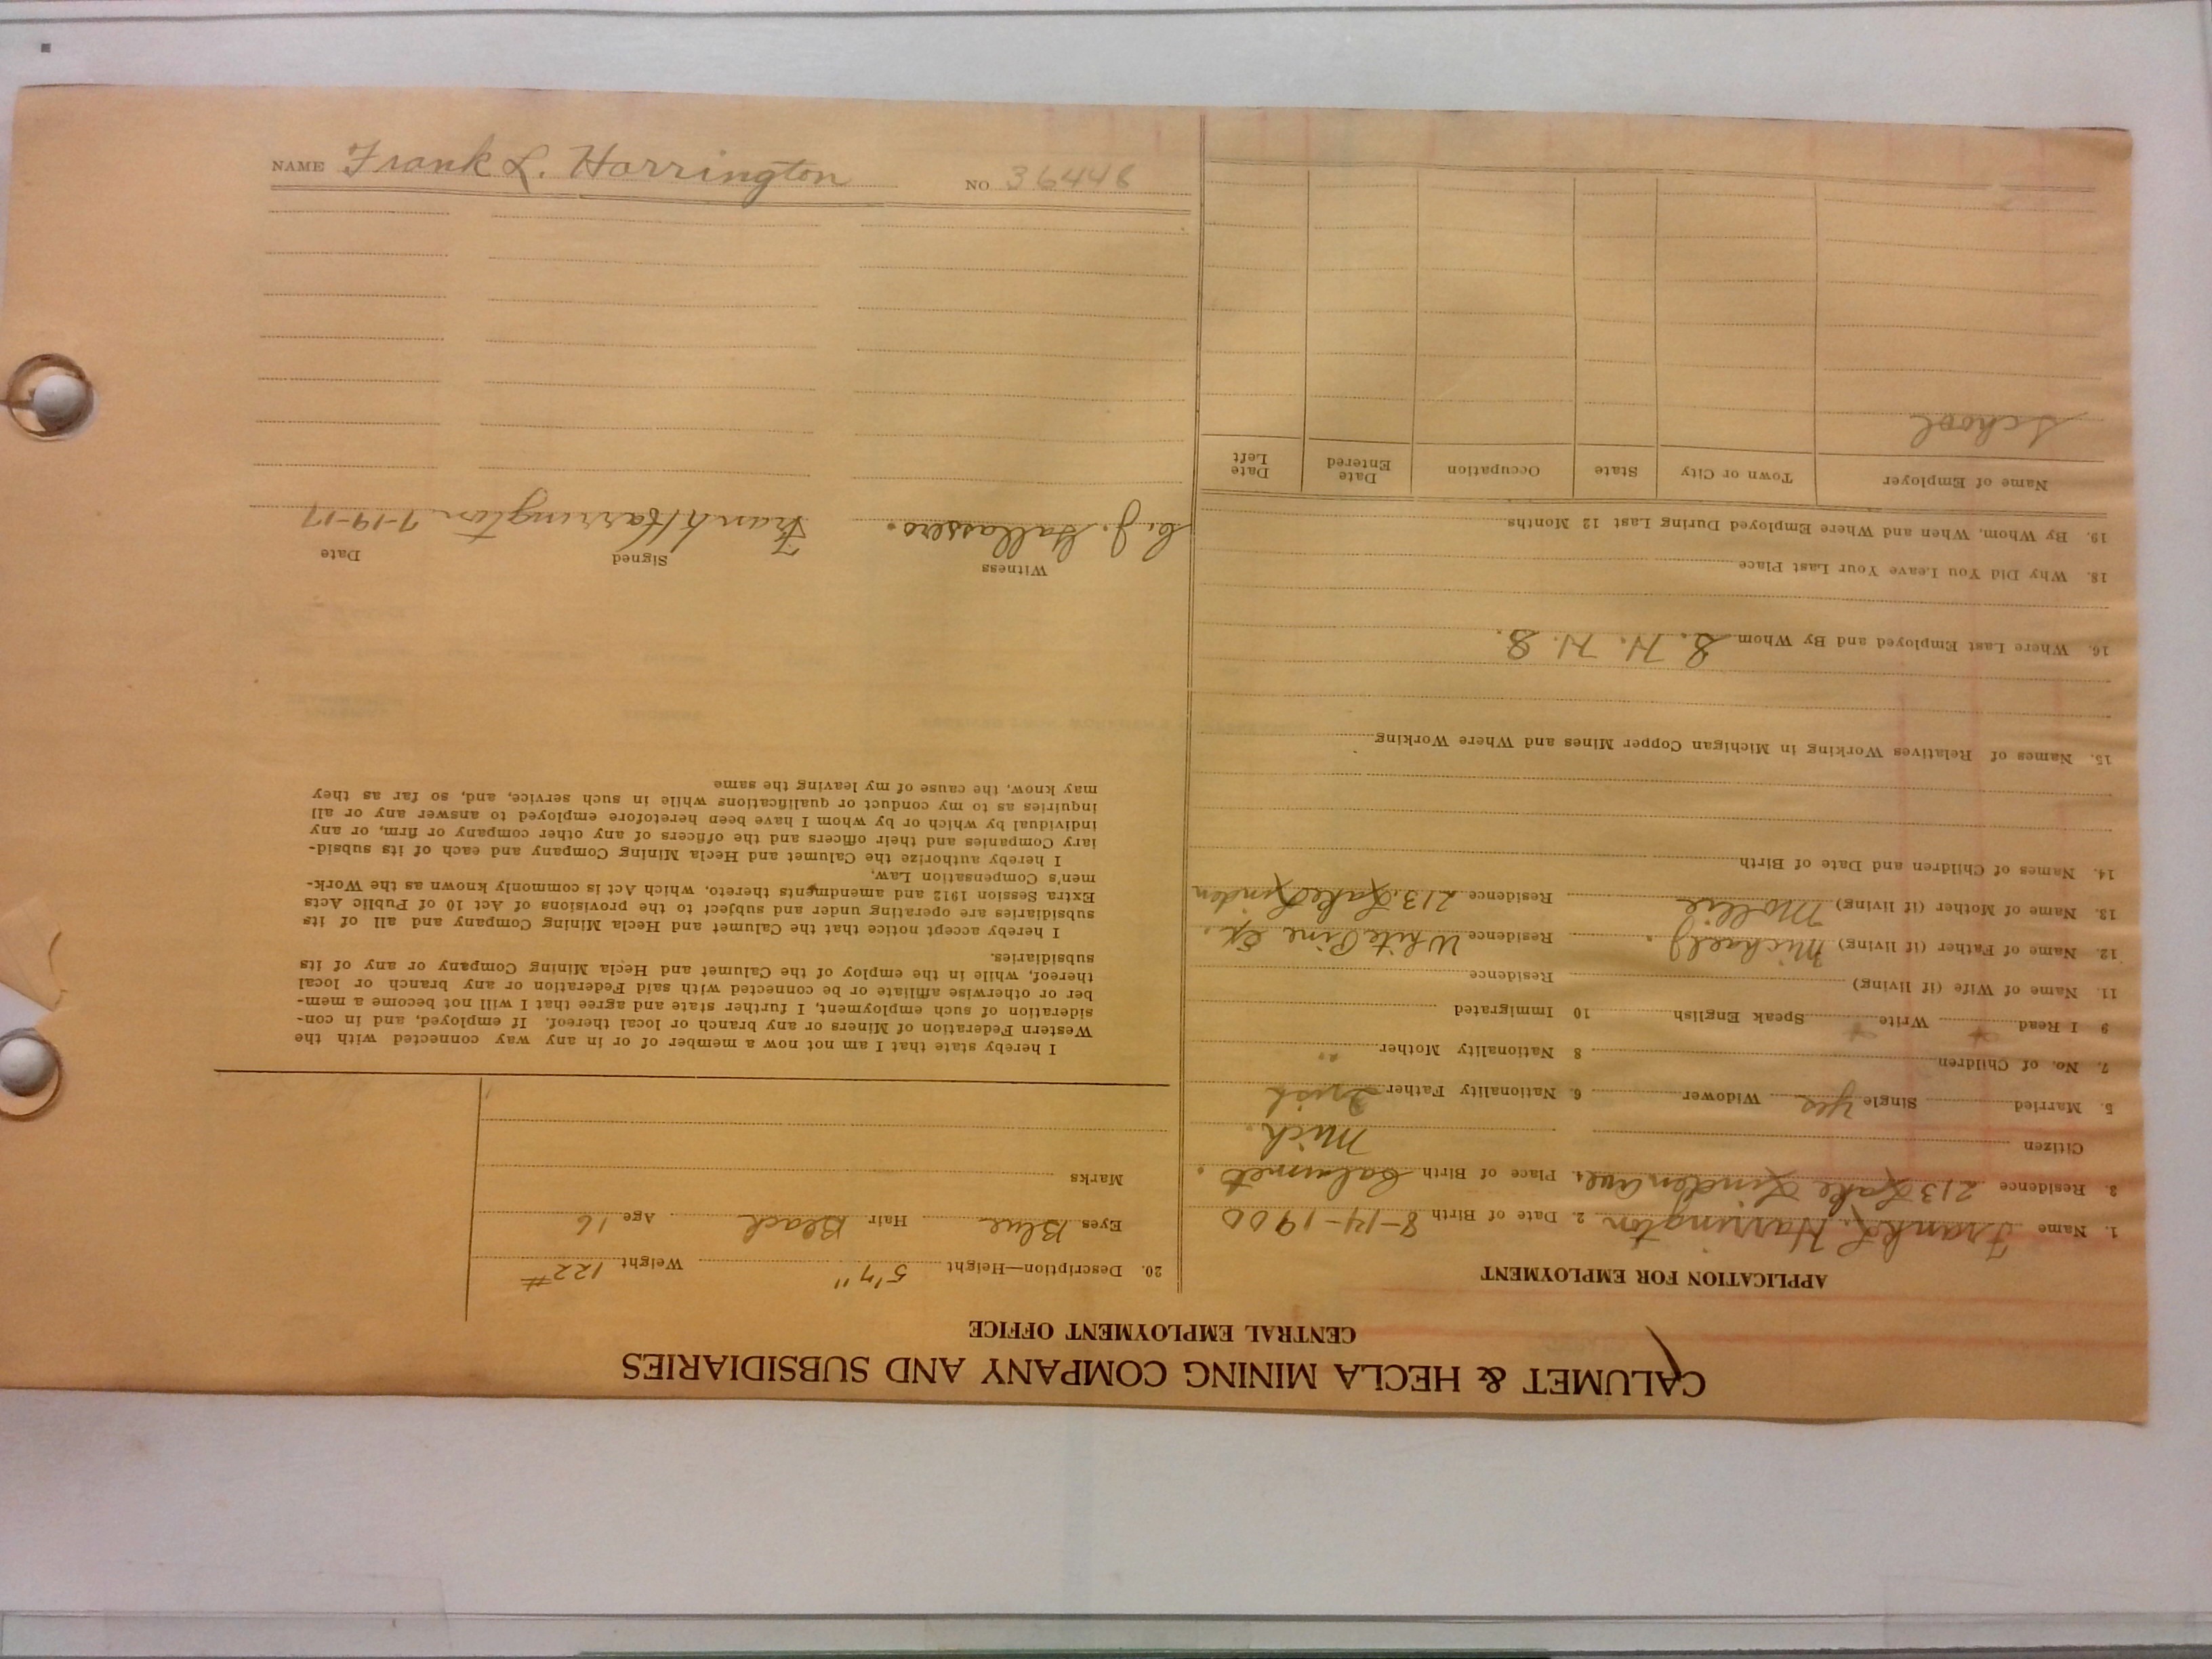 CALUMET & HECLA MINING COMPANY AND SUBSIDIARIES
CENTRAL EMPLOYMENT OFFICE
APPLICATION FOR EMPLOYMENT
1. Name Frank L. Harrington 2. Date of Birth 8-14-1900
3. Residence 213 Lake Linden Ave. 4. Place of Birth Calumet.
Mich.
Citizen
5. Married Single yes Widower 6. Nationality Father Irish
7. No. of Children 8 Nationality Mother "
9 I Read + Write + Speak English 10 Immigrated
11. Name of Wife (if living) Residence
12. Name of Father (if living) Michael J. Residence White Pine Ex.
13. Name of Mother (if living) Mollie Residence 213 Lake Linden
14. Names of Children and Date of Birth
15. Names of Relatives Working in Michigan Copper Mines and Where Working
16. Where Last Employed and By Whom S. H. H. S.
18. Why Did You Leave Your Last Place
19. By Whom, When and Where Employed During Last 12 Months
Name of Employer Town or City State Occupation Date Entered Date Left
School
20. Description—Height 5'7" Weight 122#
Eyes Blue Hair Black Age 16
Marks
I hereby state that I am not now a member of or in any way connected with the
Western Federation of Miners or any branch or local thereof. If employed, and in con-
sideration of such employment, I further state and agree that I will not become a mem-
ber or otherwise affiliate or be connected with said Federation or any branch or local
thereof, while in the employ of the Calumet and Hecla Mining Company or any of its
subsidiaries.
I hereby accept notice that the Calumet and Hecla Mining Company and all of its
subsidiaries are operating under and subject to the provisions of Act 10 of Public Acts
Extra Session 1912 and amendments thereto, which Act is commonly known as the Work-
men's Compensation Law,
I hereby authorize the Calumet and Hecla Mining Company and each of its subsid-
iary Companies and their officers and the officers of any other company or firm, or any
individual by which or by whom I have been heretofore employed to answer any or all
inquiries as to my conduct or qualifications while in such service, and, so far as they
may know, the cause of my leaving the same
Witness Signed Date
C. J. Gallassero. Frank Harrington 7-19-17
NAME Frank L. Harrington NO 36448